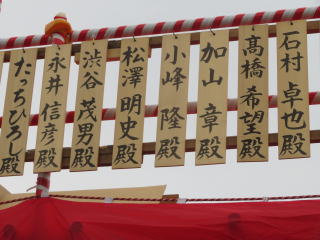 石村卓也殿
髙橋希望殿
加山章殿
小峰隆殿
松澤明史殿
渋谷茂男殿
永井信彦殿
たっちひろし殿